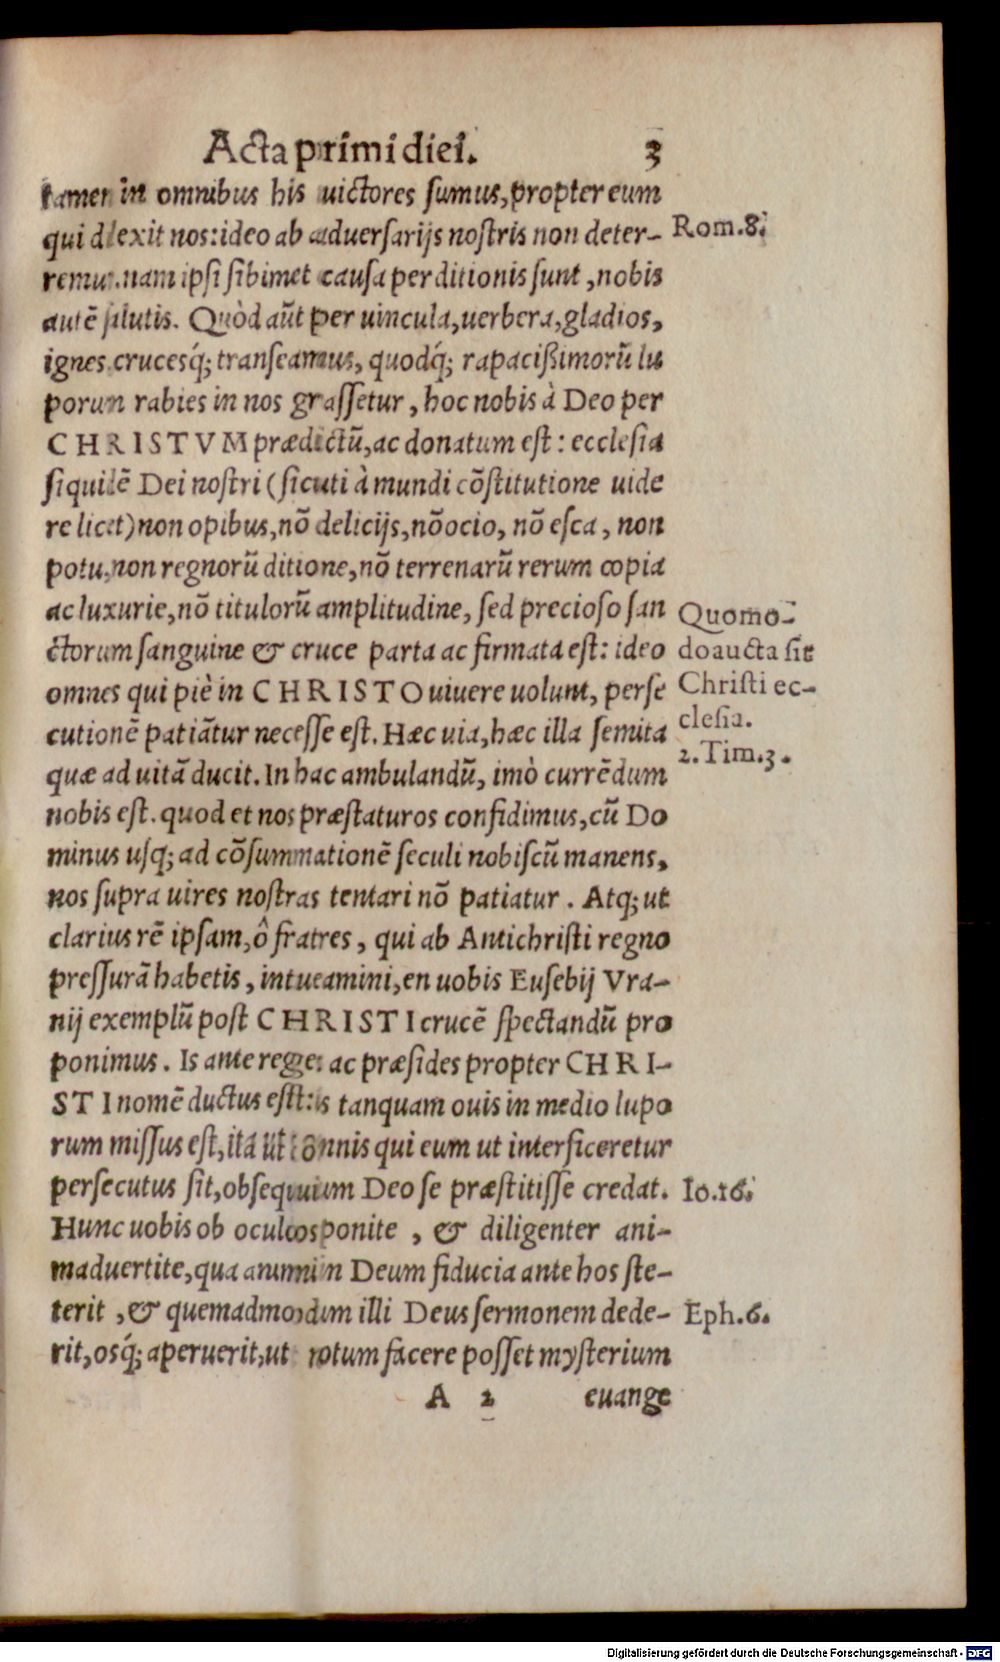 Acta primi diei. 3
tamen in omnibus his uictores sumus, propter eum
qui dilexit nos: ideo ab aduersarijs nostris non deter-
remur. nam ipsi sibimet causa perditionis sunt, nobis
autē salutis. Quòd aūt per uincula, uerbera, gladios,
ignes crucesq́; transeamus, quodq́; rapacißimorū lu
porum rabies in nos grassetur, hoc nobis à Deo per
CHRISTVM prædictū, ac donatum est: ecclesia
siquidē Dei nostri (sicuti à mundi cōstitutione uide
re licet) non opibus, nō delicijs, nō ocio, nō esca, non
potu, non regnorū ditione, nō terrenarū rerum copia
ac luxurie, nō titulorū amplitudine, sed precioso san
ctorum sanguine & cruce parta ac firmata est: ideo
omnes qui piè in CHRISTO uiuere uolunt, perse
cutionē patiātur necesse est. Hæc uia, hæc illa semita
quæ ad uitā ducit. In hac ambulandū, imò currēdum
nobis est. quod et nos præstaturos confidimus, cū Do
minus usq; ad cōsummationē seculi nobiscū manens,
nos supra uires nostras tentari nō patiatur. Atq; ut
clarius rē ipsam, ô fratres, qui ab Antichristi regno
pressurā habetis, intueamini, en uobis Eusebij Vra-
nij exemplū post CHRISTI crucē spectandū pro
ponimus. Is ante reges ac præsides propter CHRI-
STI nomē ductus est: is tanquam ouis in medio lupo
rum missus est, ita ut omnis qui eum ut interficeretur
persecutus sit, obsequium Deo se præstitisse credat.
Hunc uobis ob oculos ponite, & diligenter ani-
maduertite, qua animi in Deum fiducia ante hos ste-
terit, & quemadmodum illi Deus sermonem dede-
rit, osq́; aperuerit, ut notum facere posset mysterium
A 2 euange
Rom.8.
Quomo-
do aucta sit
Christi ec-
clesia.
2.Tim.3.
Io.16.
Eph.6.
Digitalisierung gefördert durch die Deutsche Forschungsgemeinschaft - DFG